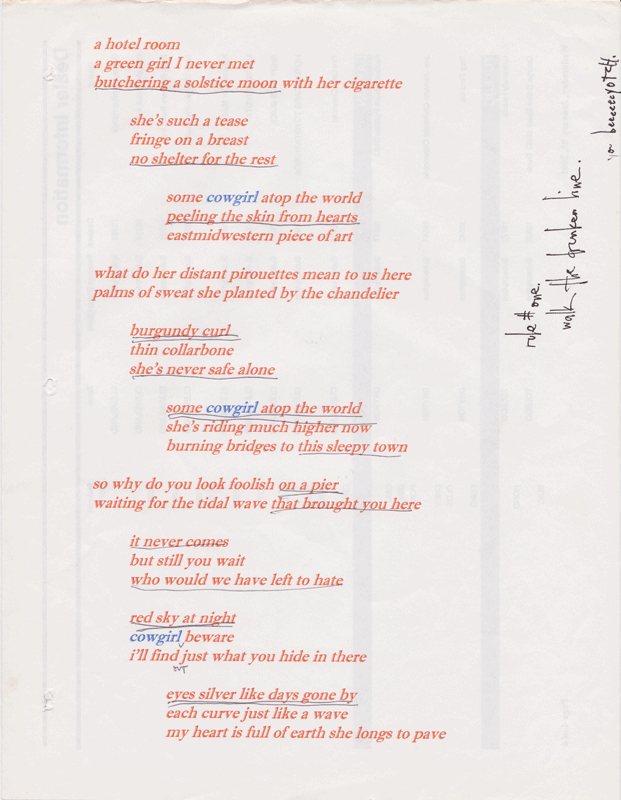 a hotel room
a green girl I never met
butchering a solstice moon with her cigarette
she's such a tease
fringe on a breast
no shelter for the rest
some cowgirl atop the world
peeling the skin from hearts
eastmidwestern piece of art
what do her distant pirouettes mean to us here
palms of sweat she planted by the chandelier
burgundy curl
thin collarbone
she's never safe alone
some cowgirl atop the world
she's riding much higher now
burning bridges to this sleepy town
so why do you look foolish on a pier
waiting for the tidal wave that brought you here
it never comes
but still you wait
who would we have left to hate
red sky at night
cowgirl beware
i'll find just what you hide in there
out
eyes silver like days gone by
each curve just like a wave
my heart is full of earth she longs to pave
rule # one.
walk the drunken line.
Dealer Information